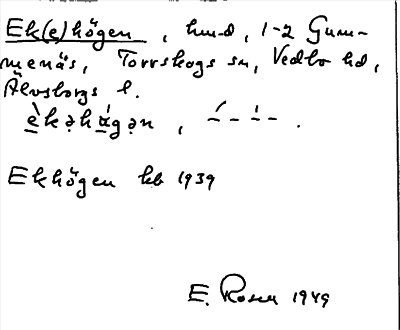 Ek(e)högen, hmd, 1-2 Gum-
menäs, Torrskogs sn, Vedbo hd,
Älvsborgs l.
èkəhǻgən,
Ekhögen kb 1939
E. Rosen 1949